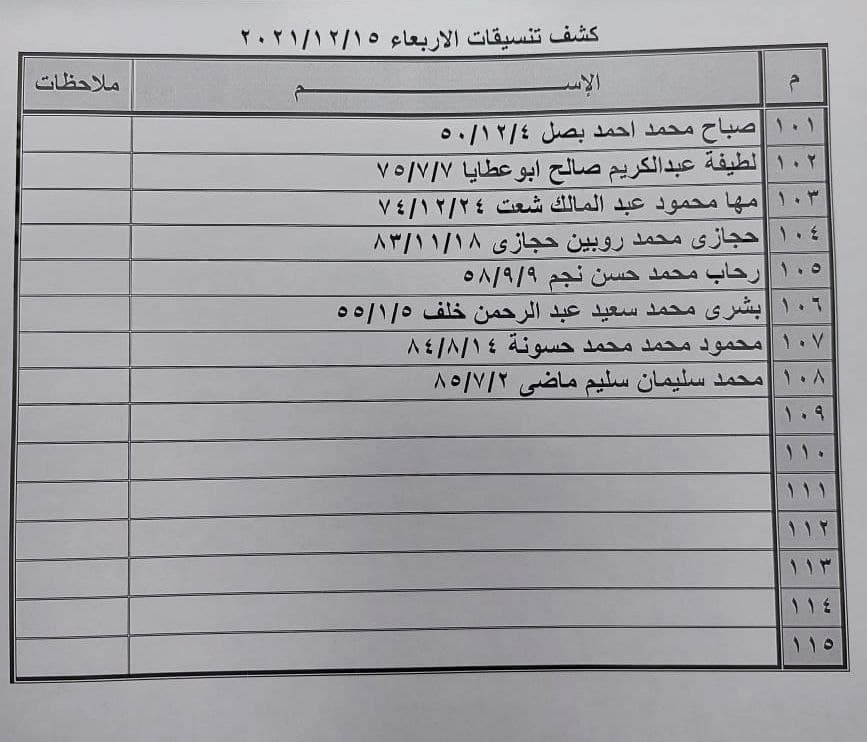 كشف تنسيقات الاربعاء ٢٠٢١/١٢/١٥
م الإســـــــــــــــــــــم ملاحظات
١٠١ صباح محمد احمد بصل ٥٠/١٢/٤
١٠٢ لطيفة عبدالكريم صالح ابوعطايا ٧٥/٧/٧
١٠٣ مها محمود عبد المالك شعت ٧٤/١٢/٢٤
١٠٤ حجازى محمد روبين حجازى ٨٣/١١/١٨
١٠٥ رحاب محمد حسن نجم ٥٨/٩/٩
١٠٦ بشرى محمد سعيد عبد الرحمن خلف ٥٥/١/٥
١٠٧ محمود محمد محمد حسونة ٨٤/٨/١٤
١٠٨ محمد سليمان سليم ماضى ٨٥/٧/٢
١٠٩
١١٠
١١١
١١٢
١١٣
١١٤
١١٥